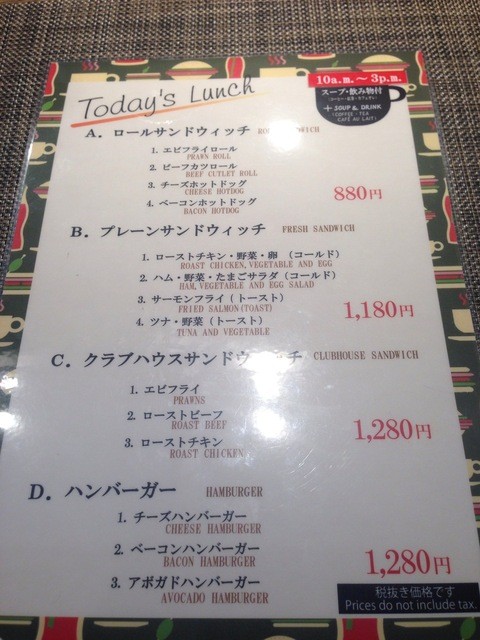 Today's Lunch
10a.m.～3p.m.
スープ・飲み物付
＋SOUP & DRINK
COFFEE・TEA
CAFÉ AU LAIT
A. ロールサンドウィッチ
1. エビフライロール
PRAWN ROLL
2. ビーフカツロール
BEEF CUTLET ROLL
3. チーズホットドッグ
CHEESE HOTDOG
4. ベーコンホットドッグ
BACON HOTDOG
880円
B. プレーンサンドウィッチ FRESH SANDWICH
1. ローストチキン・野菜・卵 （コールド）
ROAST CHICKEN,VEGETABLE AND EGG
2. ハム・野菜・たまごサラダ（コールド）
HAM,VEGETABLE AND EGG SALAD
3. サーモンフライ（トースト）
FRIED SALMON(TOAST)
4. ツナ・野菜（トースト）
TUNA AND VEGETABLE
1,180円
C. クラブハウスサンドウィッチ CLUBHOUSE SANDWICH
1. エビフライ
PRAWNS
2. ローストビーフ
ROAST BEEF
3. ローストチキン
ROAST CHICKEN
1,280円
D. ハンバーガー HAMBURGER
1. チーズハンバーガー
CHEESE HAMBURGER
2. ベーコンハンバーガー
BACON HAMBURGER
3. アボガドハンバーガー
AVOCADO HAMBURGER
1,280円
税抜き価格です
Prices do not include tax.